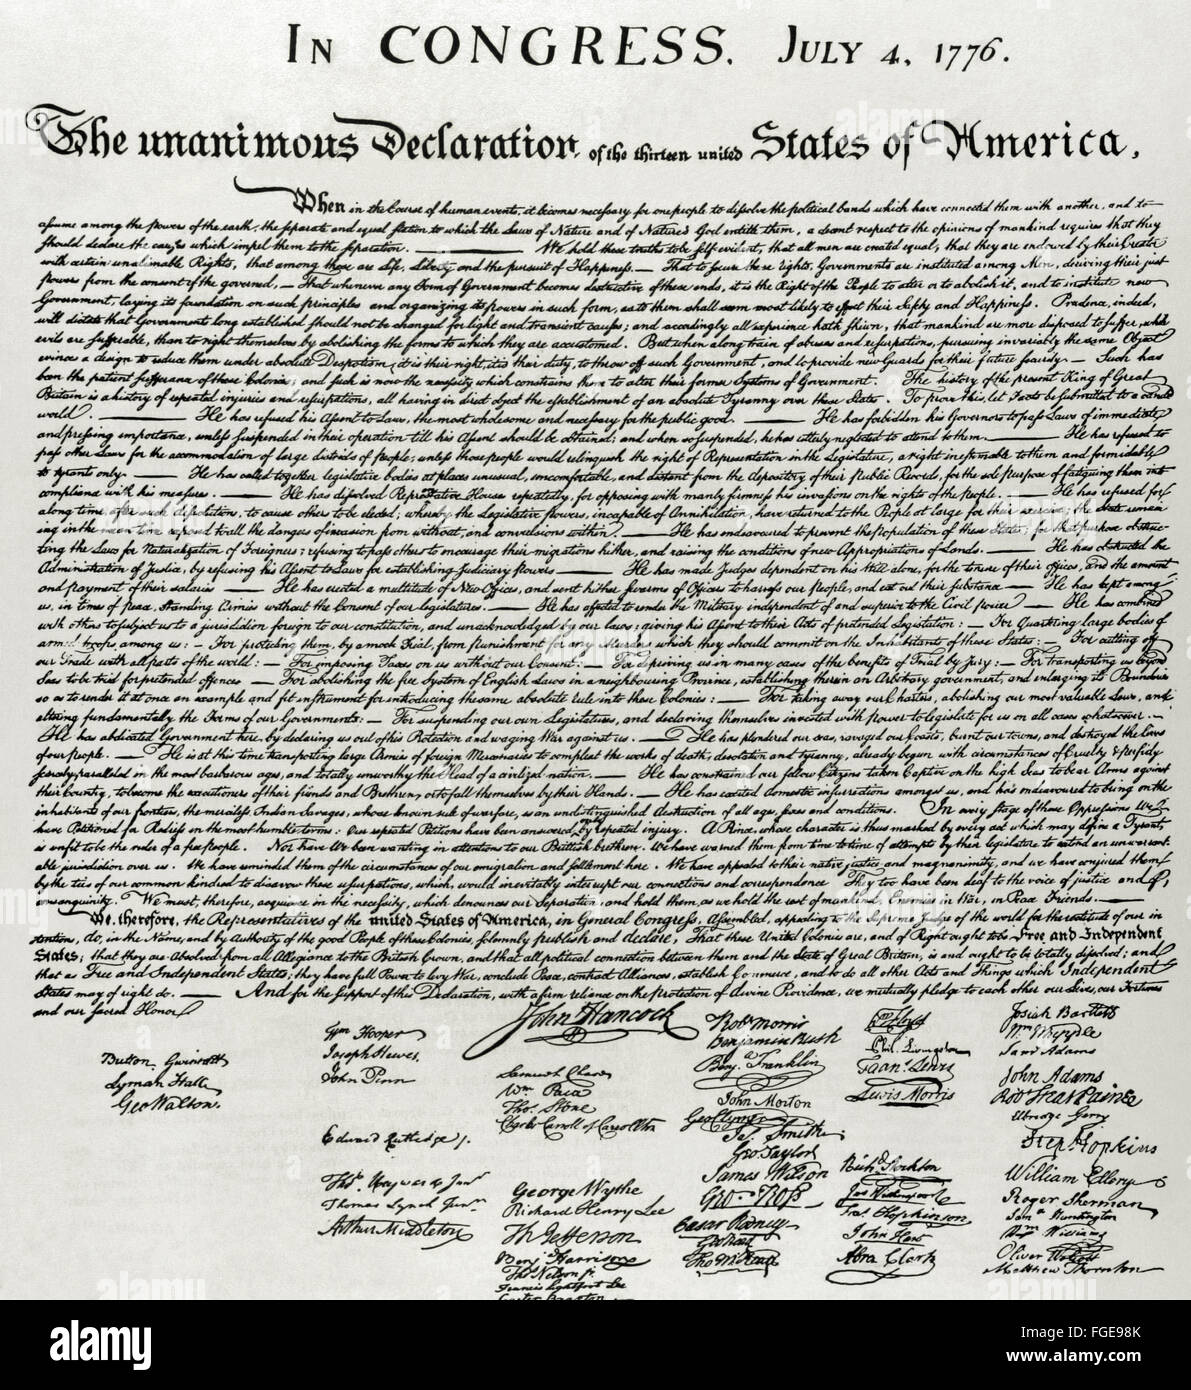 IN CONGRESS. JULY 4, 1776.
The unanimous Declaration of the thirteen united States of America,
When in the Course of human events, it becomes necessary for one people to dissolve the political bands which have connected them with another, and to
assume among the powers of the earth, the separate and equal station to which the Laws of Nature and of Nature's God entitle them, a decent respect to the opinions of mankind requires that they
should declare the causes which impel them to the separation. — We hold these truths to be self-evident, that all men are created equal, that they are endowed by their Creator
with certain unalienable Rights, that among these are Life, Liberty and the pursuit of Happiness. — That to secure these rights, Governments are instituted among Men, deriving their just
powers from the consent of the governed, — That whenever any Form of Government becomes destructive of these ends, it is the Right of the People to alter or to abolish it, and to institute new
Government, laying its foundation on such principles and organizing its powers in such form, as to them shall seem most likely to effect their Safety and Happiness. Prudence, indeed,
will dictate that Governments long established should not be changed for light and transient causes; and accordingly all experience hath shewn, that mankind are more disposed to suffer, while
evils are sufferable, than to right themselves by abolishing the forms to which they are accustomed. But when a long train of abuses and usurpations, pursuing invariably the same Object
evinces a design to reduce them under absolute Despotism, it is their right, it is their duty, to throw off such Government, and to provide new Guards for their future security. — Such has
been the patient sufferance of these Colonies; and such is now the necessity which constrains them to alter their former Systems of Government. The history of the present King of Great
Britain is a history of repeated injuries and usurpations, all having in direct object the establishment of an absolute Tyranny over these States. To prove this, let Facts be submitted to a candid
world. — He has refused his Assent to Laws, the most wholesome and necessary for the public good. — He has forbidden his Governors to pass Laws of immediate
and pressing importance, unless suspended in their operation till his Assent should be obtained; and when so suspended, he has utterly neglected to attend to them. — He has refused to
pass other Laws for the accommodation of large districts of people, unless those people would relinquish the right of Representation in the Legislature, a right inestimable to them and formidable
to tyrants only. — He has called together legislative bodies at places unusual, uncomfortable, and distant from the depository of their Public Records, for the sole Purpose of fatiguing them into
compliance with his measures. — He has dissolved Representative Houses repeatedly, for opposing with manly firmness his invasions on the rights of the people. — He has refused for a
long time, after such dissolutions, to cause others to be elected; whereby the Legislative powers, incapable of Annihilation, have returned to the People at large for their exercise; the State remain
ing in the mean time exposed to all the dangers of invasion from without, and convulsions within. — He has endeavoured to prevent the population of these States; for that purpose obstruc-
ting the Laws for Naturalization of Foreigners; refusing to pass others to encourage their migrations hither, and raising the conditions of new Appropriations of Lands. — He has obstructed the
Administration of Justice, by refusing his Assent to Laws for establishing Judiciary powers — He has made Judges dependent on his Will alone, for the tenure of their offices, and the amount
and payment of their salaries — He has erected a multitude of New Offices, and sent hither swarms of Officers to harrass our People, and eat out their substance — He has kept among
us, in times of peace, Standing Armies without the Consent of our legislatures. — He has affected to render the Military independent of and superior to the Civil power — He has combined
with others to subject us to a jurisdiction foreign to our constitution, and unacknowledged by our laws; giving his Assent to their Acts of pretended Legislation: — For Quartering large bodies of
armed troops among us: — For protecting them, by a mock Trial, from punishment for any Murders which they should commit on the Inhabitants of these States: — For cutting off
our Trade with all parts of the world: — For imposing Taxes on us without our Consent: — For depriving us in many cases of the benefits of Trial by jury: — For transporting us beyond
Seas to be tried for pretended offences — For abolishing the free System of English Laws in a neighbouring Province, establishing therein an Arbitrary government, and enlarging its Boundaries
so as to render it at once an example and fit instrument for introducing the same absolute rule into these Colonies: — For taking away our Charters, abolishing our most valuable Laws, and
altering fundamentally the Forms of our Governments: — For suspending our own Legislatures, and declaring themselves invested with power to legislate for us in all cases whatsoever. —
He has abdicated Government here by declaring us out of his Protection and waging War against us. — He has plundered our seas, ravaged our Coasts, burnt our towns, and destroyed the lives
of our people. — He is at this time transporting large Armies of foreign Mercenaries to compleat the works of death, desolation and tyranny, already begun with circumstances of Cruelty & perfidy
scarcely paralleled in the most barbarous ages, and totally unworthy the Head of a civilized nation. — He has constrained our fellow Citizens taken Captive on the high Seas to bear Arms against
their Country, to become the executioners of their friends and Brethren, or to fall themselves by their Hands. — He has excited domestic insurrections amongst us, and has endeavoured to bring on the
inhabitants of our frontiers, the merciless Indian Savages, whose known rule of warfare, is an undistinguished destruction of all ages, sexes and conditions. In every stage of these Oppressions We
have Petitioned for Redress in the most humble terms: Our repeated Petitions have been answered by repeated injury. A Prince, whose character is thus marked by every act which may define a Tyrant,
is unfit to be the ruler of a free people. Nor have We been wanting in attentions to our Brittish brethren. We have warned them from time to time of attempts by their legislature to extend an unwarrant-
able jurisdiction over us. We have reminded them of the circumstances of our emigration and settlement here. We have appealed to their native justice and magnanimity, and we have conjured them
by the ties of our common kindred to disavow these usurpations, which, would inevitably interrupt our connections and correspondence They too have been deaf to the voice of justice and of
consanguinity. We must, therefore, acquiesce in the necessity, which denounces our Separation, and hold them, as we hold the rest of mankind, Enemies in War, in Peace Friends. —
We, therefore, the Representatives of the united States of America, in General Congress, Assembled, appealing to the Supreme Judge of the world for the rectitude of our in
tentions, do, in the Name, and by Authority of the good People of these Colonies, solemnly publish and declare, That these United Colonies are, and of Right ought to be Free and Independent
States; that they are Absolved from all Allegiance to the British Crown, and that all political connection between them and the State of Great Britain, is and ought to be totally dissolved; and
that as Free and Independent States, they have full Power to levy War, conclude Peace, contract Alliances, establish Commerce, and to do all other Acts and Things which Independent
States may of right do. — And for the support of this Declaration, with a firm reliance on the protection of divine Providence, we mutually pledge to each other our Lives, our Fortunes
and our sacred Honor.
Button Gwinnett
Lyman Hall
Geo Walton.
Wm Hooper
Joseph Hewes,
John Penn
Edward Rutledge /.
Thos Heyward Junr.
Thomas Lynch Junr.
Arthur Middleton
John Hancock
Samuel Chase
Wm Paca
Thos Stone
Charles Carroll of Carrollton
George Wythe
Richard Henry Lee
Th Jefferson
Benj Harrison
Thos Nelson jr.
Francis Lightfoot Lee
Carter Braxton
Robt Morris
Benjamin Rush
Benja Franklin
John Morton
Geo Clymer
Jas Smith
Geo Taylor
James Wilson
Geo Ross
Caesar Rodney
Geo Read
Tho M:Kean
Wm Floyd
Phil. Livingston
Frans Lewis
Lewis Morris
Richd Stockton
Jno Witherspoon
Fras Hopkinson
John Hart
Abra Clark
Josiah Bartlett
Wm Whipple
Saml Adams
John Adams
Robt Treat Paine
Elbridge Gerry
Step Hopkins
William Ellery
Roger Sherman
Saml Huntington
Wm Williams
Oliver Wolcott
Matthew Thornton
alamy
alamy stock photo
FGE98K
www.alamy.com